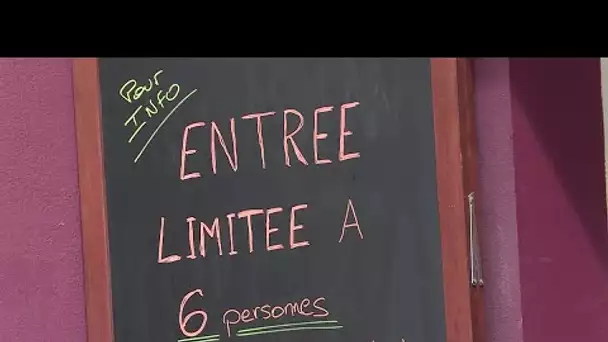 Pour
INFO
ENTREE
LIMITEE A
6 personnes